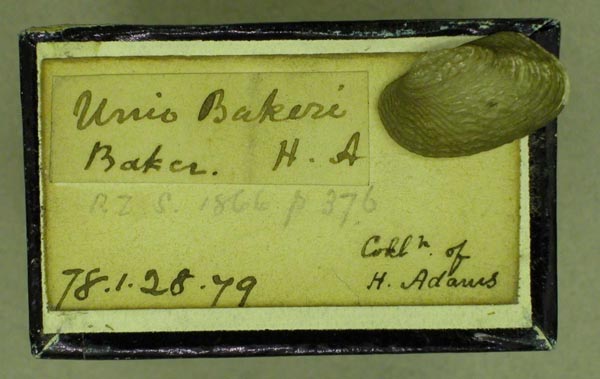 Unio Bakeri
Baker. H. A
P. Z. S. 1866 p 376
78.1.28.79
Collⁿ. of
H. Adams